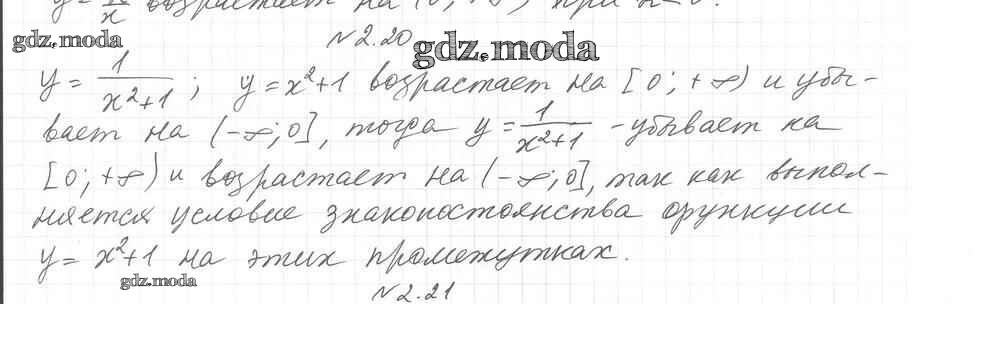 возрастает на при
gdz.moda
№ 2.20
gdz.moda
y = 1/(x²+1); y = x²+1 возрастает на [0; +∞) и убы-
вает на (-∞; 0], тогда y = 1/(x²+1) - убывает на
[0; +∞) и возрастает на (-∞; 0], так как выпол-
няется условие знакопостоянства функции
y = x²+1 на этих промежутках.
gdz.moda
№ 2.21